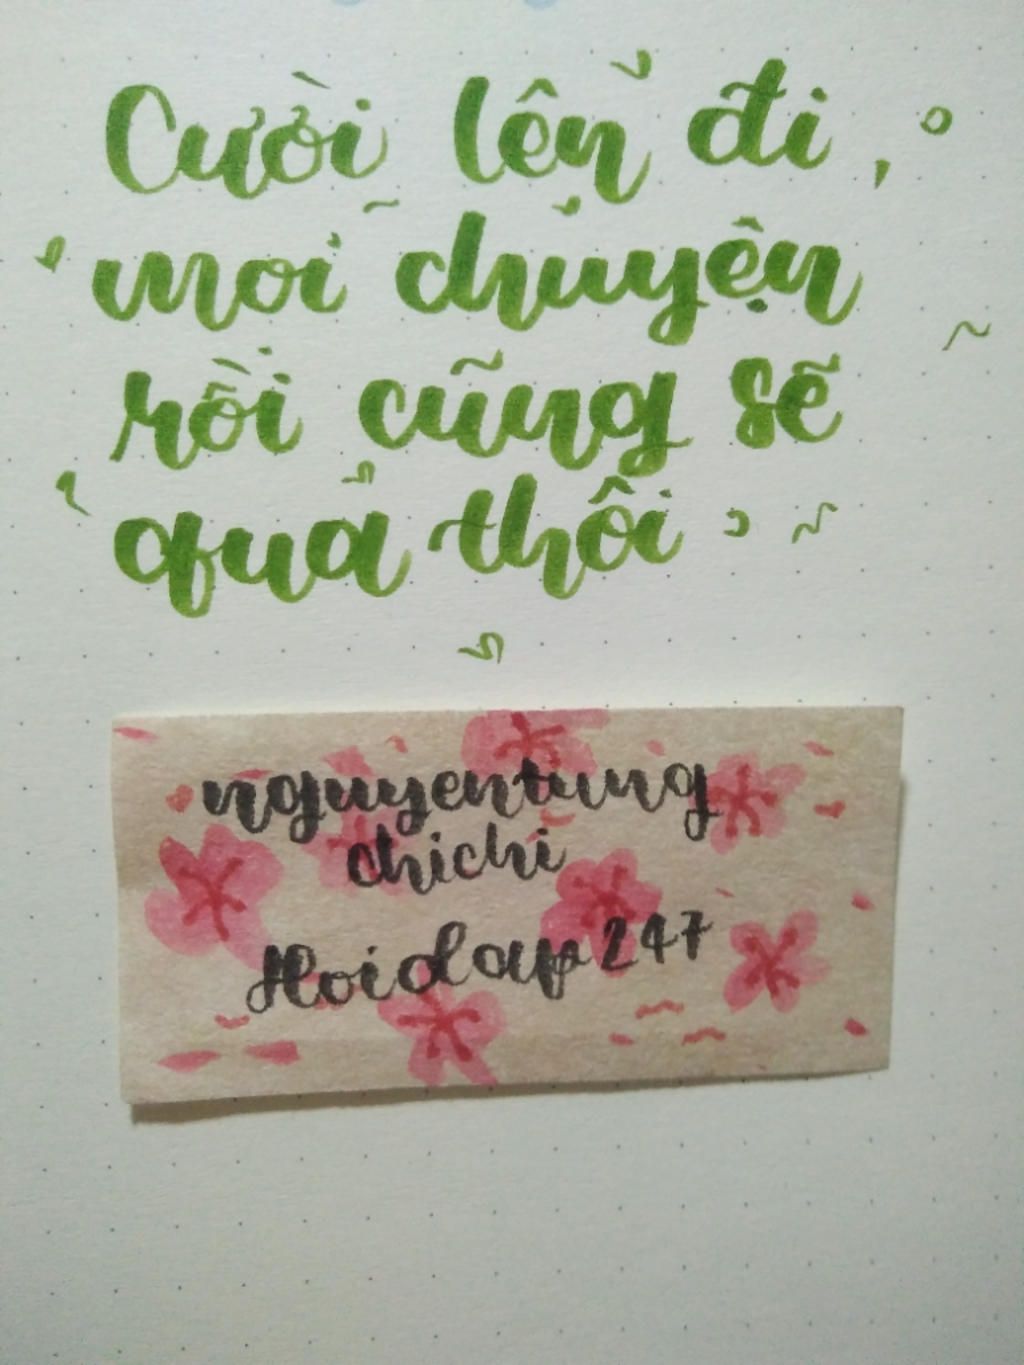 Cười lên đi,
mọi chuyện
rồi cũng sẽ
qua thôi
nguyentung
chichi
Hoidap247